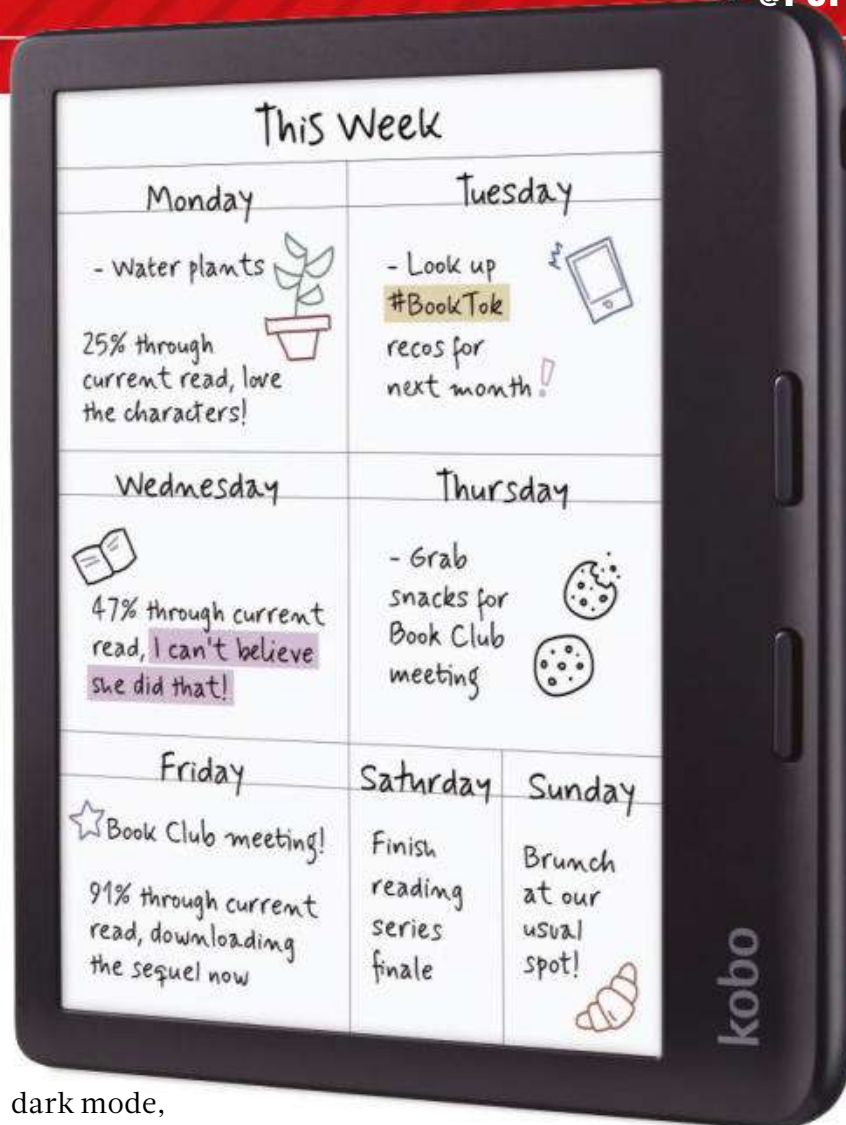 This Week
Monday
- Water plants
25% through
current read, love
the characters!
Tuesday
- Look up
#BookTok
recos for
next month!
Wednesday
47% through current
read, I can't believe
she did that!
Thursday
- Grab
snacks for
Book Club
meeting
Friday
Book Club meeting!
91% through current
read, downloading
the sequel now
Saturday
Finish
reading
series
finale
Sunday
Brunch
at our
usual
spot!
kobo
dark mode,